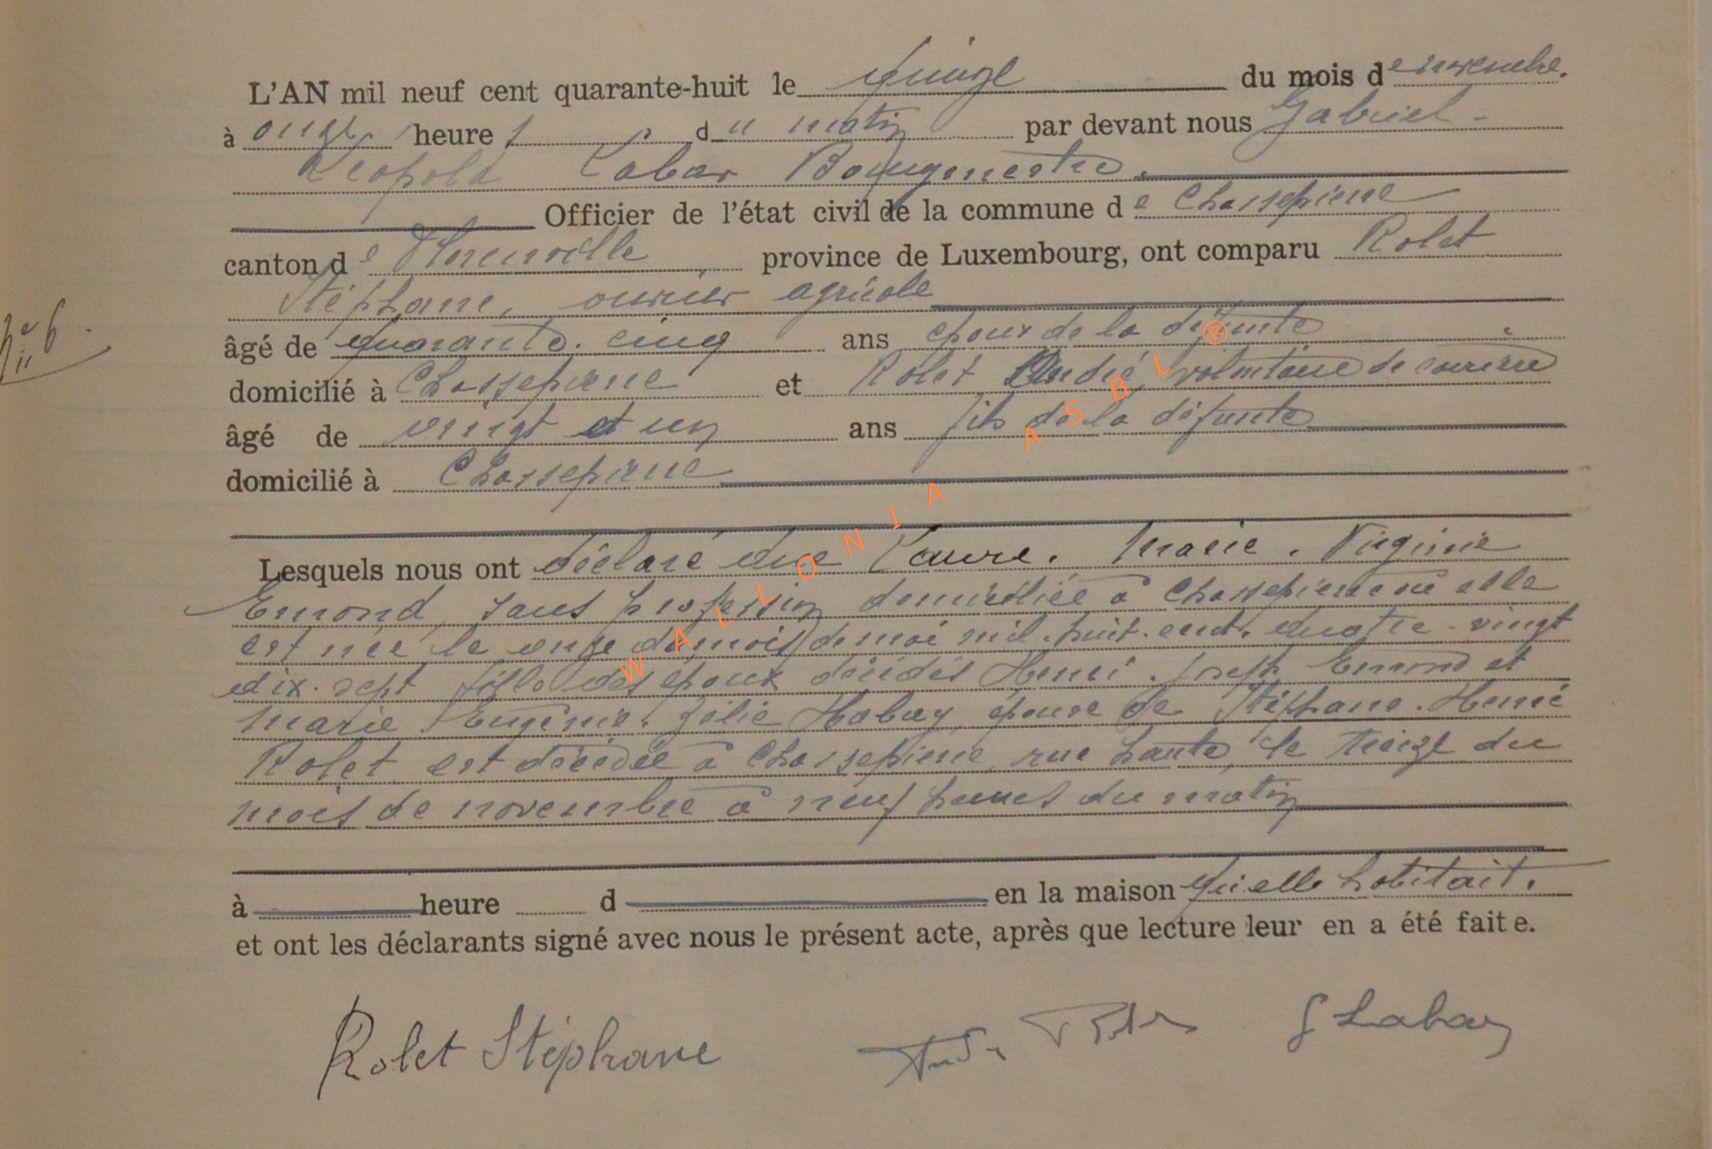 L'AN mil neuf cent quarante-huit le quinze du mois de novembre.
à onze heures du matin par devant nous Gabriel
Léopold Labar Bourgmestre.
Officier de l'état civil de la commune de Chassepierre
canton de Florenville province de Luxembourg, ont comparu Rolet
Stéphane, ouvrier agricole
âgé de quarante-cinq ans époux de la défunte
domicilié à Chassepierre et Rolet André, volontaire de carrière
âgé de vingt et un ans fils de la défunte
domicilié à Chassepierre
Nº 6
Lesquels nous ont déclaré que Laure. Marie. Virginie
Emond, sans profession domiciliée à Chassepierre où elle
est née le onze du mois de mai mil. huit. cent. quatre-vingt
dix-sept fille des époux décédés Henri. Joseph Emond et
Marie. Eugénie. Habay épouse de Stéphane. Henri
Rolet est décédée à Chassepierre, rue haute, le treize du
mois de novembre à neuf heures du matin
à heure d en la maison qu'elle habitait.
et ont les déclarants signé avec nous le présent acte, après que lecture leur en a été faite.
Rolet Stéphane
WALLONIA ASBL ®